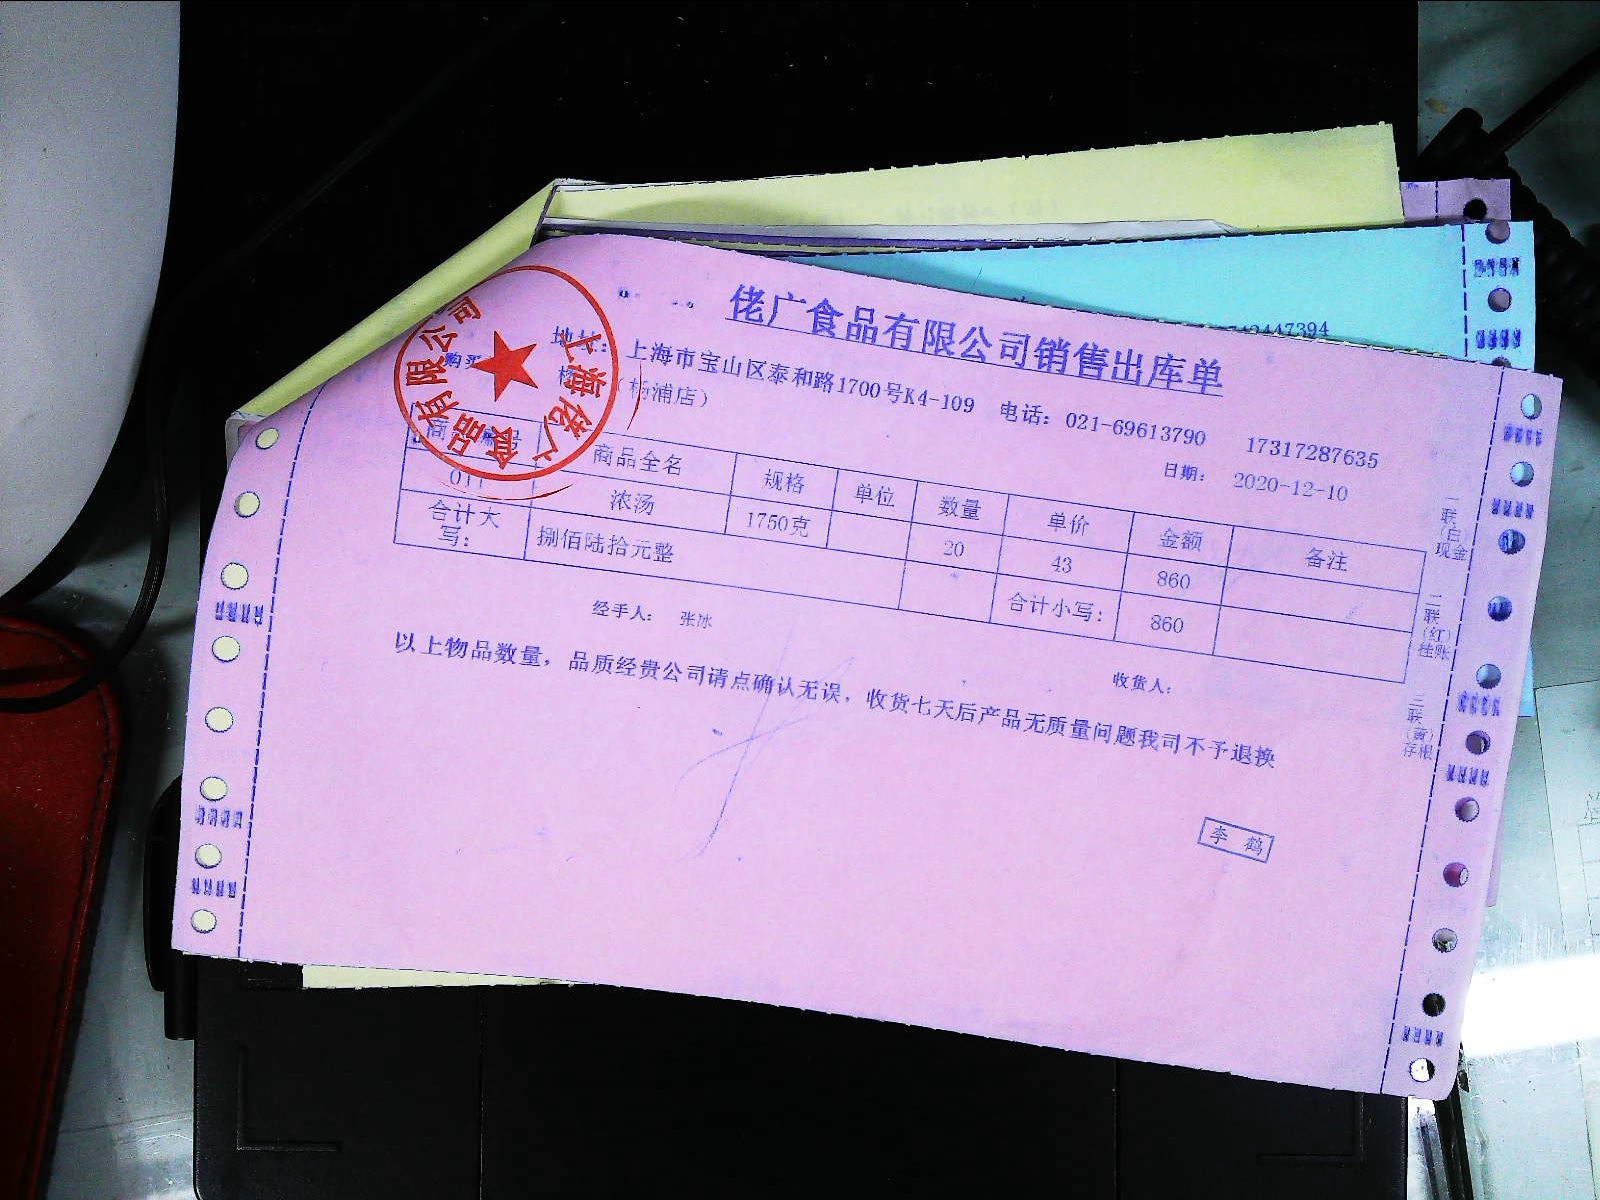 佬广食品有限公司销售出库单
地址：上海市宝山区泰和路1700号K4-109 电话：021-69613790 17317287635
购买 （杨浦店） 日期： 2020-12-10
商品编号 商品全名 规格 单位 数量 单价 金额 备注
011 浓汤 1750克 20 43 860
合计大写： 捌佰陆拾元整 合计小写： 860
经手人： 张冰 收货人：
以上物品数量，品质经贵公司请点确认无误，收货七天后产品无质量问题我司不予退换
李鹤
一联（白）现金
二联（红）挂账
三联（黄）存根
上海佬广食品有限公司
2447394